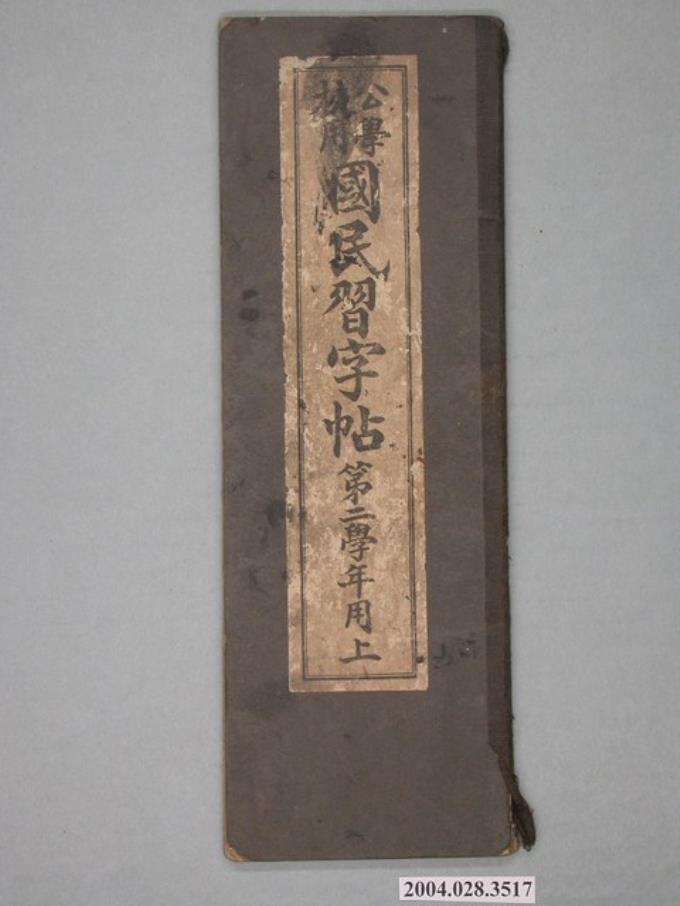 公學
校用
國民習字帖 第二學年用上
2004.028.3517